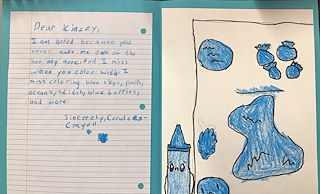 Dear Kinzey,
I am bored because you
never take me out of the
box any more. And I miss
when you color with. I
miss coloring blue skys, pools,
oceans, stitch, blue berries,
and more.
Sincerely,
Crayon